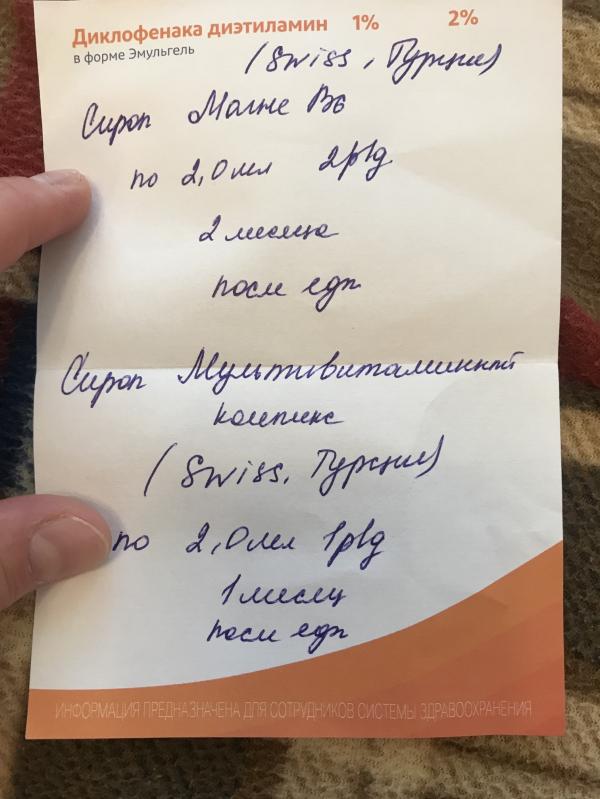 Диклофенака диэтиламин 1% 2%
в форме Эмульгель
(Swiss, Турция)
Сироп Магне B6
по 2,0 мл 2р/д
2 месяца
после еды
Сироп Мультивитаминный
комплекс
(Swiss, Турция)
по 2,0 мл 1р/д
1 месяц
после еды
ИНФОРМАЦИЯ ПРЕДНАЗНАЧЕНА ДЛЯ СОТРУДНИКОВ СИСТЕМЫ ЗДРАВООХРАНЕНИЯ